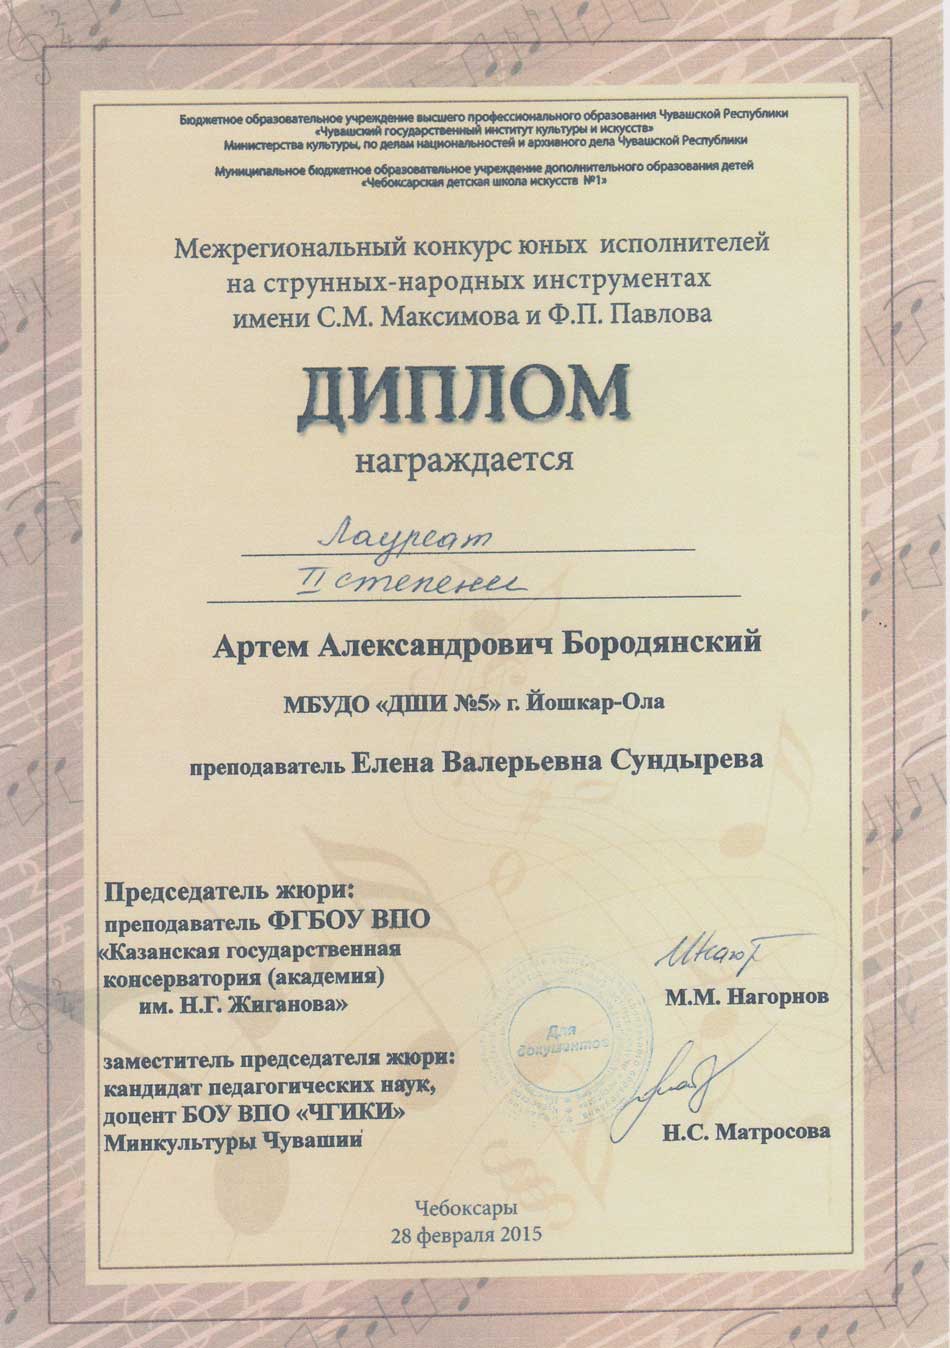 Бюджетное образовательное учреждение высшего профессионального образования Чувашской Республики
«Чувашский государственный институт культуры и искусств»
Министерства культуры, по делам национальностей и архивного дела Чувашской Республики
Муниципальное бюджетное образовательное учреждение дополнительного образования детей
«Чебоксарская детская школа искусств №1»
Межрегиональный конкурс юных исполнителей
на струнных-народных инструментах
имени С.М. Максимова и Ф.П. Павлова
ДИПЛОМ
награждается
Лауреат
II степени
Артем Александрович Бородянский
МБУДО «ДШИ №5» г. Йошкар-Ола
преподаватель Елена Валерьевна Сундырева
Председатель жюри:
преподаватель ФГБОУ ВПО
«Казанская государственная
консерватория (академия)
им. Н.Г. Жиганова»
М.М. Нагорнов
Для
документов
заместитель председателя жюри:
кандидат педагогических наук,
доцент БОУ ВПО «ЧГИКИ»
Минкультуры Чувашии
Н.С. Матросова
Чебоксары
28 февраля 2015